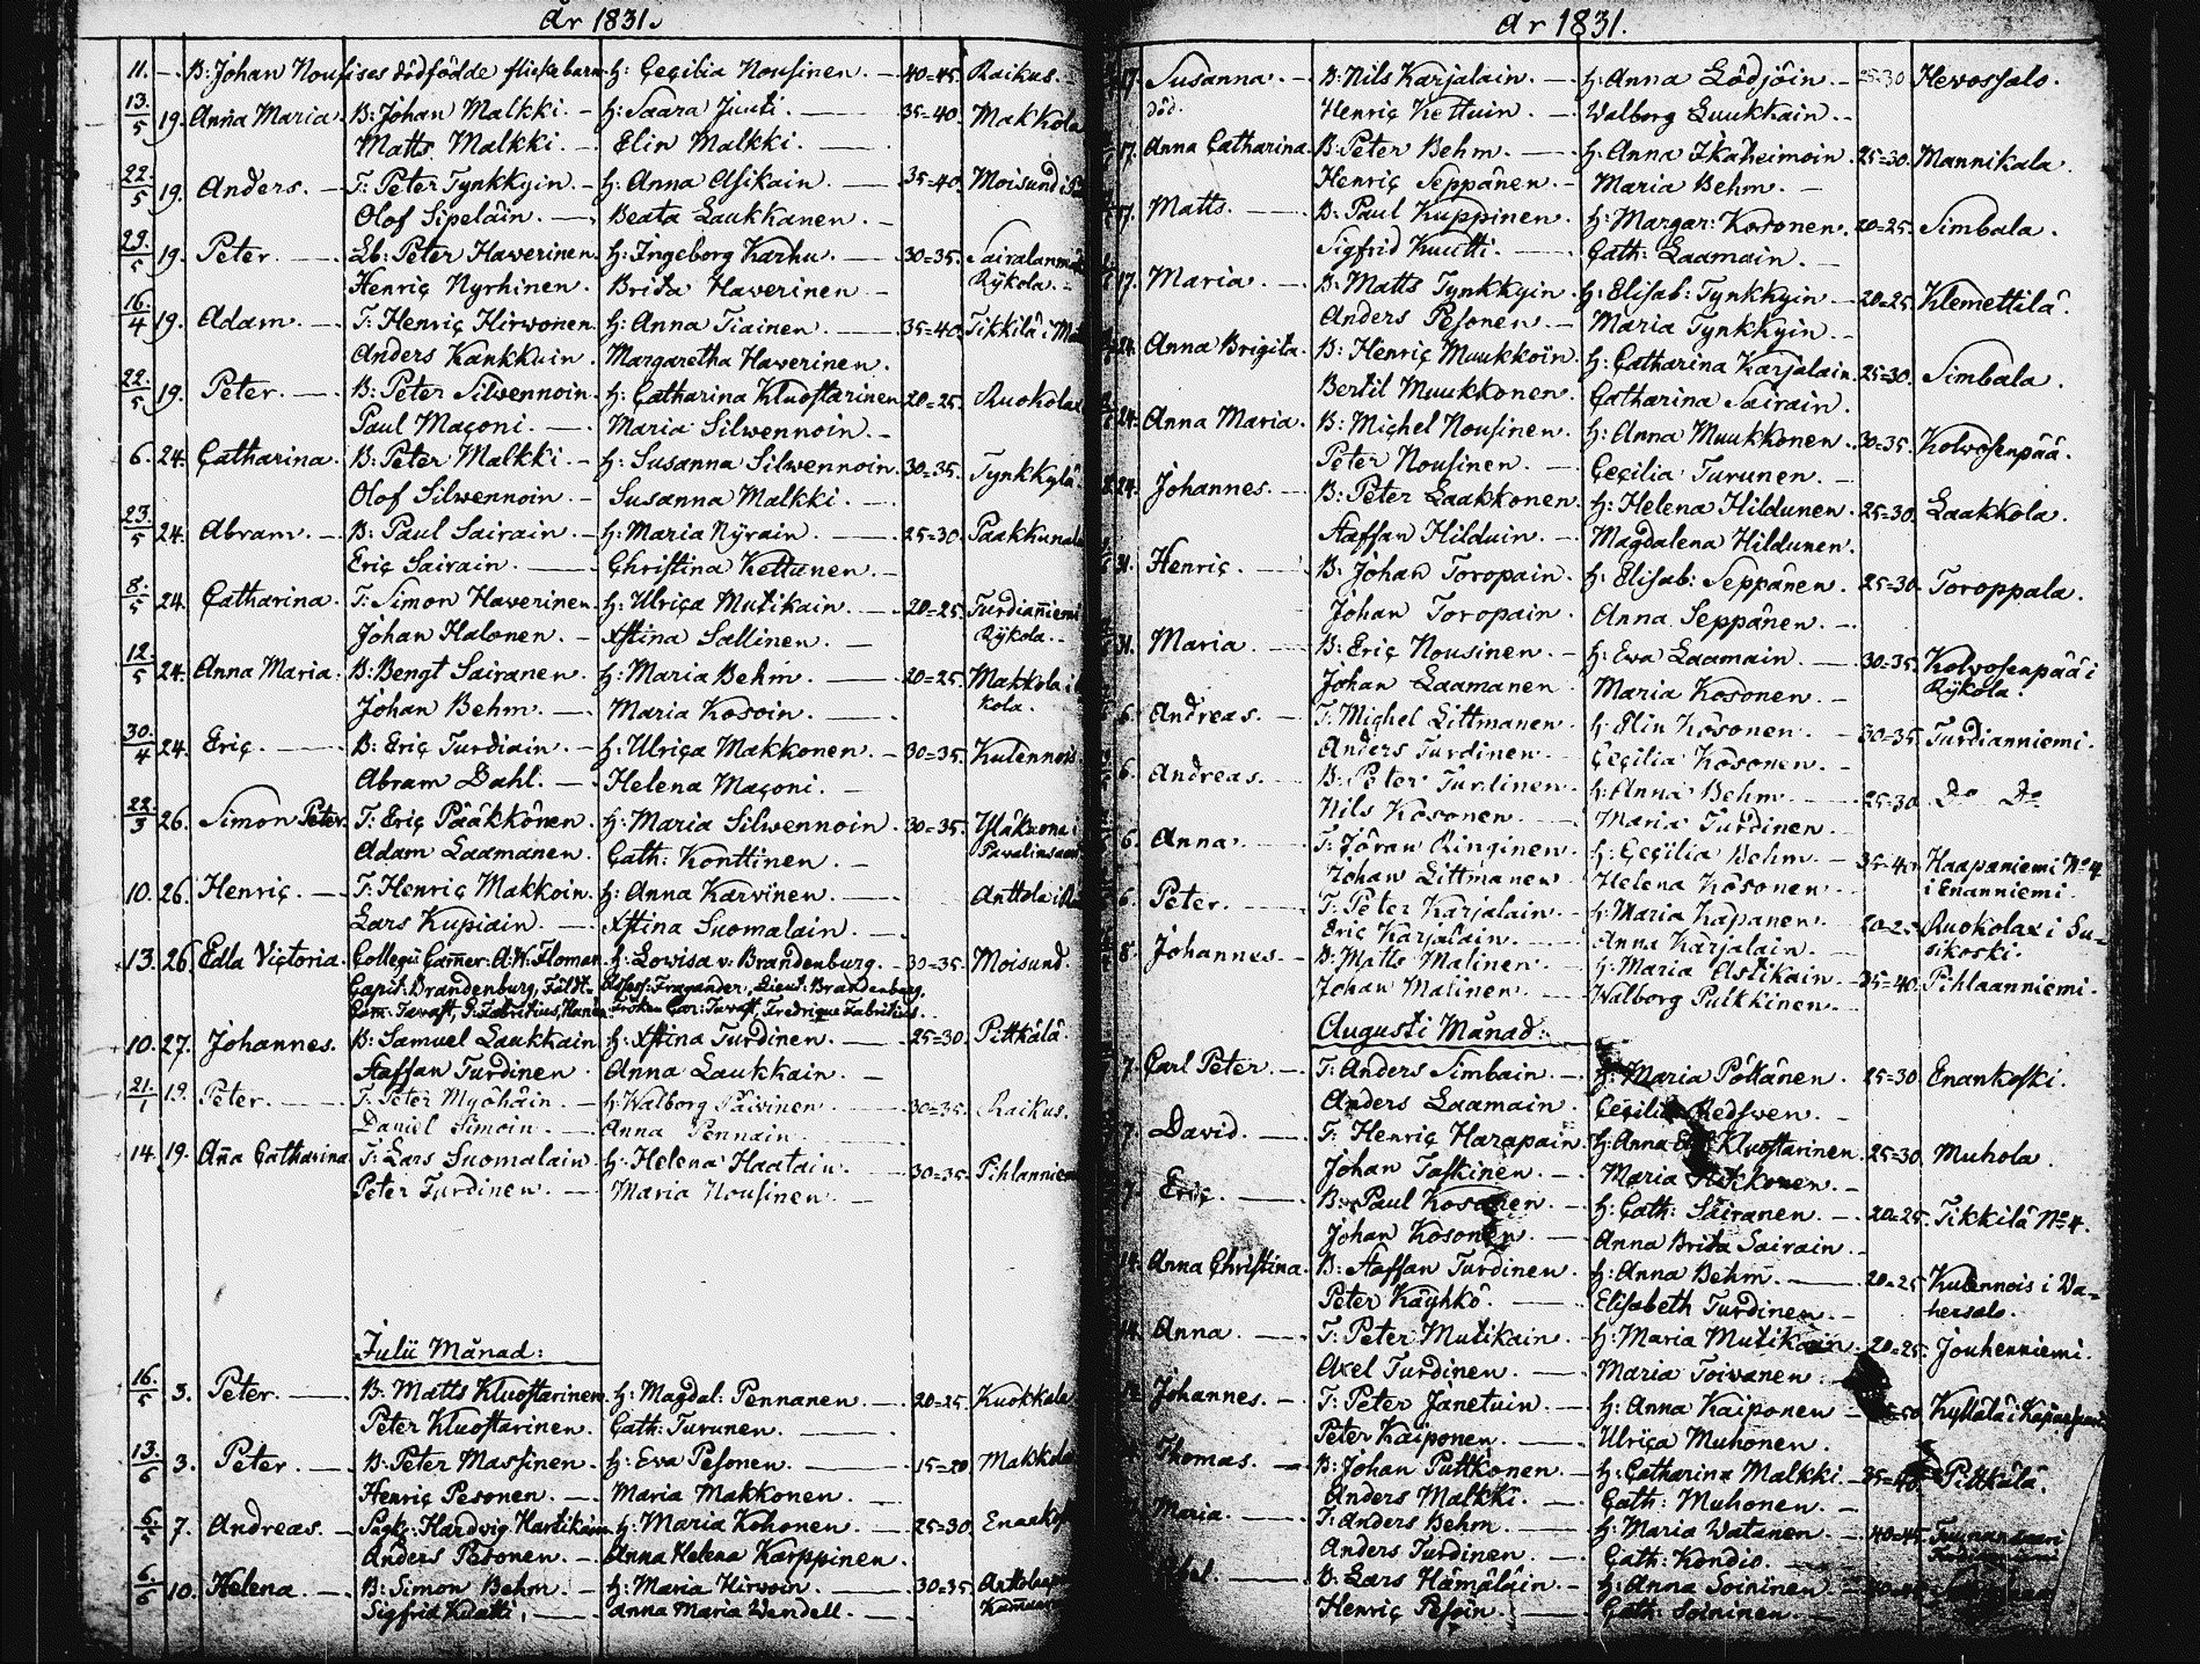 År 1831.
11. B: Johan Nousises dödfödde flickebarn H: Cecilia Nousinen. 40=45. Raikus.
13./5 19. Anna Maria. B: Johan Malkki. H: Saara Juuti. 35=40. Makkola
Matts Malkki. Elin Malkki.
22./5 19. Anders. T: Peter Tynkkyin. H: Anna Asikain. 35=40. Moisund
Olof Sipeläin. Beata Laukkanen.
29./5 19. Peter. Lb: Peter Haverinen. H: Ingeborg Karhu. 30=35.
Henric Nyrhinen. Brita Haverinen Rÿkola.
16./4 19. Adam. T: Henric Hirwonen. H: Anna Tiainen. 35=40. Tikkilä i
Anders Kankkuin. Margaretha Haverinen.
22./5 19. Peter. B: Peter Silwennoin. H: Catharina Kluostarinen 20=25. Ruokolax
Paul Maconi. Maria Silwennoin.
6. 24. Catharina. B: Peter Malkki. H: Susanna Silwennoin. 30=35. Tynkkylä
Olof Silwennoin. Susanna Malkki.
23./5 24. Abram. B: Paul Sairain. H: Maria Nÿrain. 25=30. Paakkunala
Eric Sairain. Christina Kettunen.
8./5 24. Catharina. T: Simon Haverinen. H: Ulrica Mutikain. 20=25. Turdianniemi
Johan Halonen. Xstina Sallinen. Rÿkola.
12./5 24. Anna Maria. B: Bengt Sairanen. H: Maria Behm. 20=25. Makkola i
Johan Behm. Maria Kosoin. kola.
30./4 24. Eric. B: Eric Turdiain. H: Ulrica Makkonen. 30=35. Kulennois
Abram Dahl. Helena Maconi.
22./3 26. Simon Peter. T: Eric Pääkkönen. H: Maria Silwennoin. 30=35.
Adam Laamanen. Cath: Konttinen.
10. 26. Henric. T: Henric Makkoin. H: Anna Karvinen. Anttola i
Lars Kupiain. Xstina Suomalain.
13. 26. Edla Victoria. Collegii Camer: A:W: Floman H: Lowisa v: Brandenburg. 30=35. Moisund.
Capit: Brandenburg, Fäldt= Assess: Fragander, Lieut: Brandenburg,
Cam: Tavast, Fröken Car: Tavast, Fredrique Fabritius.
10. 27. Johannes. B: Samuel Laukkain. H: Xstina Turdinen. 25=30. Pitkälä.
Staffan Turdinen. Anna Laukkain.
21./1 19. Peter. T: Peter Myöhäin. H: Walborg Päivinen. 30=35. Raikus.
Daniel Simoin. Anna Pennain.
14. 19. Anna Catharina T: Lars Suomalain. H: Helena Haatain. 30=35. Pihlanniem
Peter Turdinen. Maria Nousinen.
Julii Månad:
16./5 3. Peter. B: Matts Kluostarinen. H: Magdal: Pennanen. 20=25. Kuokkala
Peter Kluostarinen. Cath: Turunen.
13./6 3. Peter. B: Peter Massinen. H: Eva Pesonen. 15=20. Makkola
Henric Pesonen. Maria Makkonen.
6./5 7. Andreas. Hardvig Hartikain H: Maria Kohonen. 25=30.
Anders Pesonen. Anna Helena Karppinen.
6./6 10. Helena. B: Simon Behm. H: Maria Hirvoin. 30=35.
Sigfrid Kuatti. Anna Maria Wendell.
År 1831.
17. Susanna. B: Nils Karjalain. H: Anna Lödjöin. 25=30 Hevossalo.
död. Henric Kettuin. Walborg Luukkain.
17. Anna Catharina. B: Peter Behm. H: Anna Ikäheimoin. 25=30. Mannikala.
Henric Seppänen. Maria Behm.
17. Matts. B: Paul Kuppinen. H: Margar: Kosonen. 20=25. Simbala.
Sigfrid Kuutti. Cath: Laamain.
17. Maria. B: Matts Tynkkyin. H: Elisab: Tynkkyin 20=25. Klemettilä.
Anders Pesonen. Maria Tynkkyin.
24. Anna Brigita. B: Henric Muukkoin. H: Catharina Karjalain. 25=30. Simbala.
Bertil Muukkonen. Catharina Sairain.
24. Anna Maria. B: Michel Nousinen. H: Anna Muukkonen. 30=35. Kolvosenpää.
Peter Nousinen. Cecilia Turunen.
24. Johannes. B: Peter Laakkonen. H: Helena Hildunen. 25=30. Laakkola.
Staffan Hilduin. Magdalena Hildunen.
31. Henric. B: Johan Toropain. H: Elisab: Seppänen. 25=30. Toroppala.
Johan Toropain. Anna Seppänen.
31. Maria. B: Eric Nousinen. H: Eva Laamain. 30=35. Kolvosenpää i
Johan Laamanen. Maria Kosonen. Rÿkola.
6. Andreas. T: Michel Littmanen. H: Elin Kosonen. 30=35. Turdianniemi.
Anders Turdinen. Cecilia Kosonen.
6. Andreas. B: Peter Turdinen. H: Anna Behm. 25=30. Do Do
Nils Kosonen. Maria Turdinen.
6. Anna. T: Jöran Ringinen. H: Cecilia Behm. 35=40. Haapaniemi No 4
Johan Littmanen. Helena Kosonen. i Enanniemi.
6. Peter. T: Peter Karjalain. H: Maria Kapanen. 20=25. Ruokolax i Su=
Eric Karjalain. Anna Karjalain. sikoski.
8. Johannes. B: Matts Malinen. H: Maria Astikain. 35=40. Pihlaanniemi.
Johan Malinen. Walborg Pulkkinen.
Augusti Månad:
7. Carl Peter. T: Anders Simbain. H: Maria Pöllänen. 25=30. Enankoski.
Anders Laamain. Cecilia Redswen.
7. David. T: Henric Harapain. H: Anna Kluostarinen. 25=30. Muhola.
Johan Taskinen. Maria
7. Eric. B: Paul Kosonen. H: Cath: Sairanen. 20=25. Tikkilä No 4.
Johan Kosonen. Anna Brita Sairain.
14. Anna Christina. B: Staffan Turdinen. H: Anna Behm. 20=25. Kulennois i Va=
Peter Käyhkö. Elisabeth Turdinen. hersalo.
14. Anna. T: Peter Mutikain. H: Maria Mutikain. 20=25. Jouhenniemi.
Axel Turdinen. Maria Toivanen.
14. Johannes. T: Peter Janetuin. H: Anna Kaiponen
Peter Kaiponen. Ulrica Muhonen.
Thomas. B: Johan Puttkonen. H: Catharina Malkki. 35=40. Pitkälä.
Anders Malkki. Cath: Muhonen.
Maria. T: Anders Behm. H: Maria Watanen. 40=45.
Anders Turdinen. Cath: Kondio.
B: Lars Hämäläin. H: Anna Soininen
Henric Pesoin. Cath: Soininen.